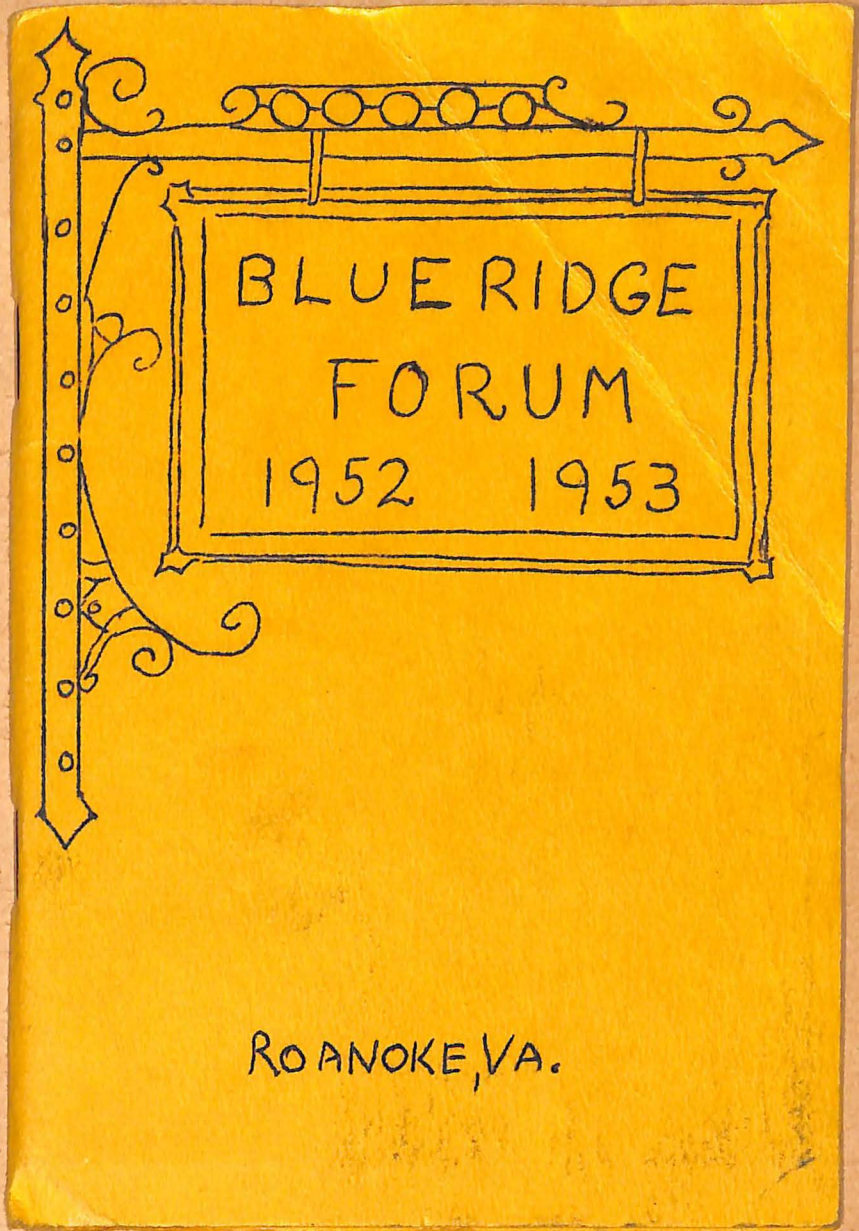 BLUE RIDGE
FORUM
1952 1953
ROANOKE, VA.